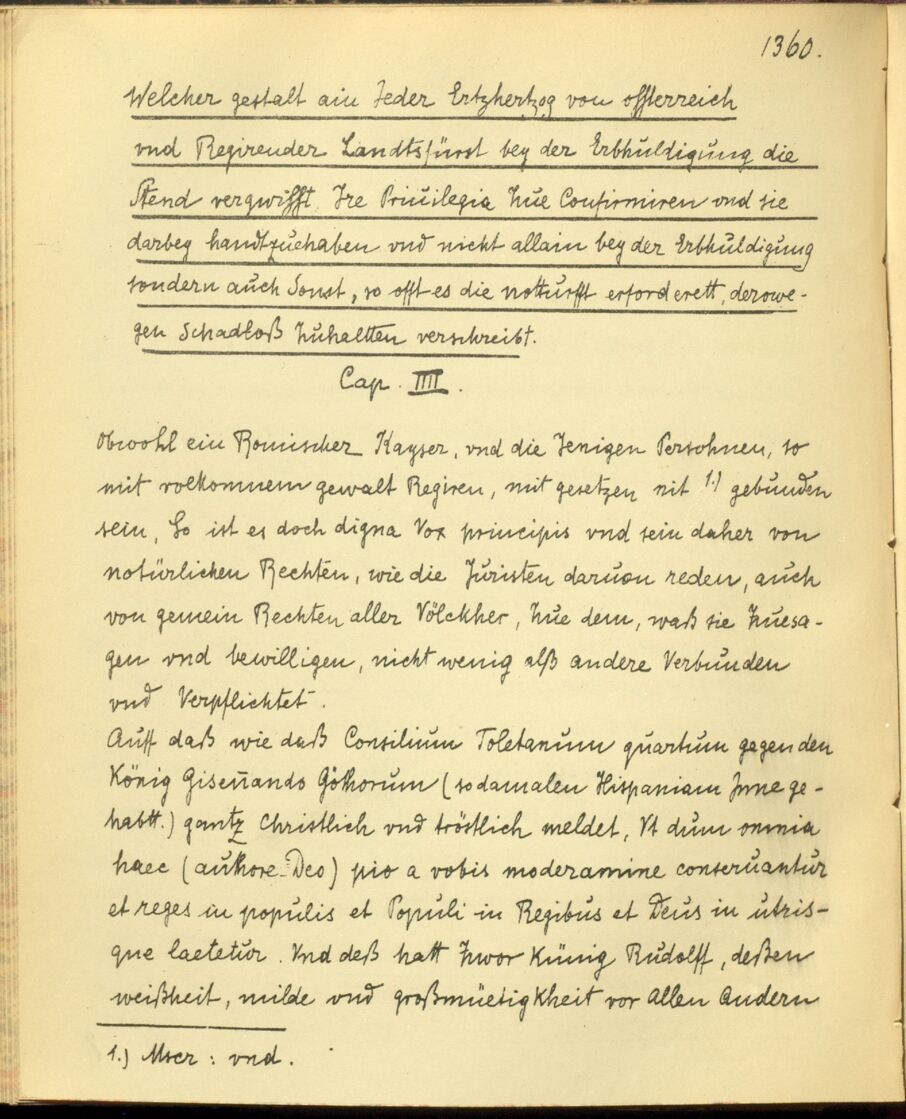 1360.
Welcher gestalt ain Jeder Ertzhertzog von össterreich
vnd Regirender Landtsfürst bey der Erbhuldigung die
Stend vergwisst Ire Priuilegia Zue Confirmiren vnd sie
darbey handtzuhaben vnd nicht allain bey der Erbhuldigung
sondern auch Sonst, so offt es die notturfft erforderett, derowe-
gen Schadloß Zuhaltten verschreibt.
Cap. IIII.
Obwohl ein Romischer Kayser, vnd die Jenigen Persohnen, so
mit volkomnem gewalt Regiren, mit gesetzen nit 1.) gebunden
sein, So ist es doch digna Vox principis vnd sein daher von
natürlichen Rechten, wie die Juristen daruon reden, auch
von gemein Rechten aller Völckher, Zue dem, waß sie Zuesa-
gen vnd bewilligen, nicht wenig alß andere Verbunden
vnd Verpflichtet.
Auff daß wie daß Consilium Toletanum quartum gegen den
König Gisenando Gothorum (so damalen Hispaniam Inne ge-
habtt.) gantz Christlich vnd tröstlich meldet, Vt dum omnia
haec (authore Deo) pio a vobis moderamine conseruantur
et reges in populis et Populi in Regibus et Deus in utris-
que laetetur. Vnd deß hatt Zwor Künig Rudolff, deßen
weißheit, milde vnd großmüetigkheit vor Allen Andern
1.) Mscr: vnd.